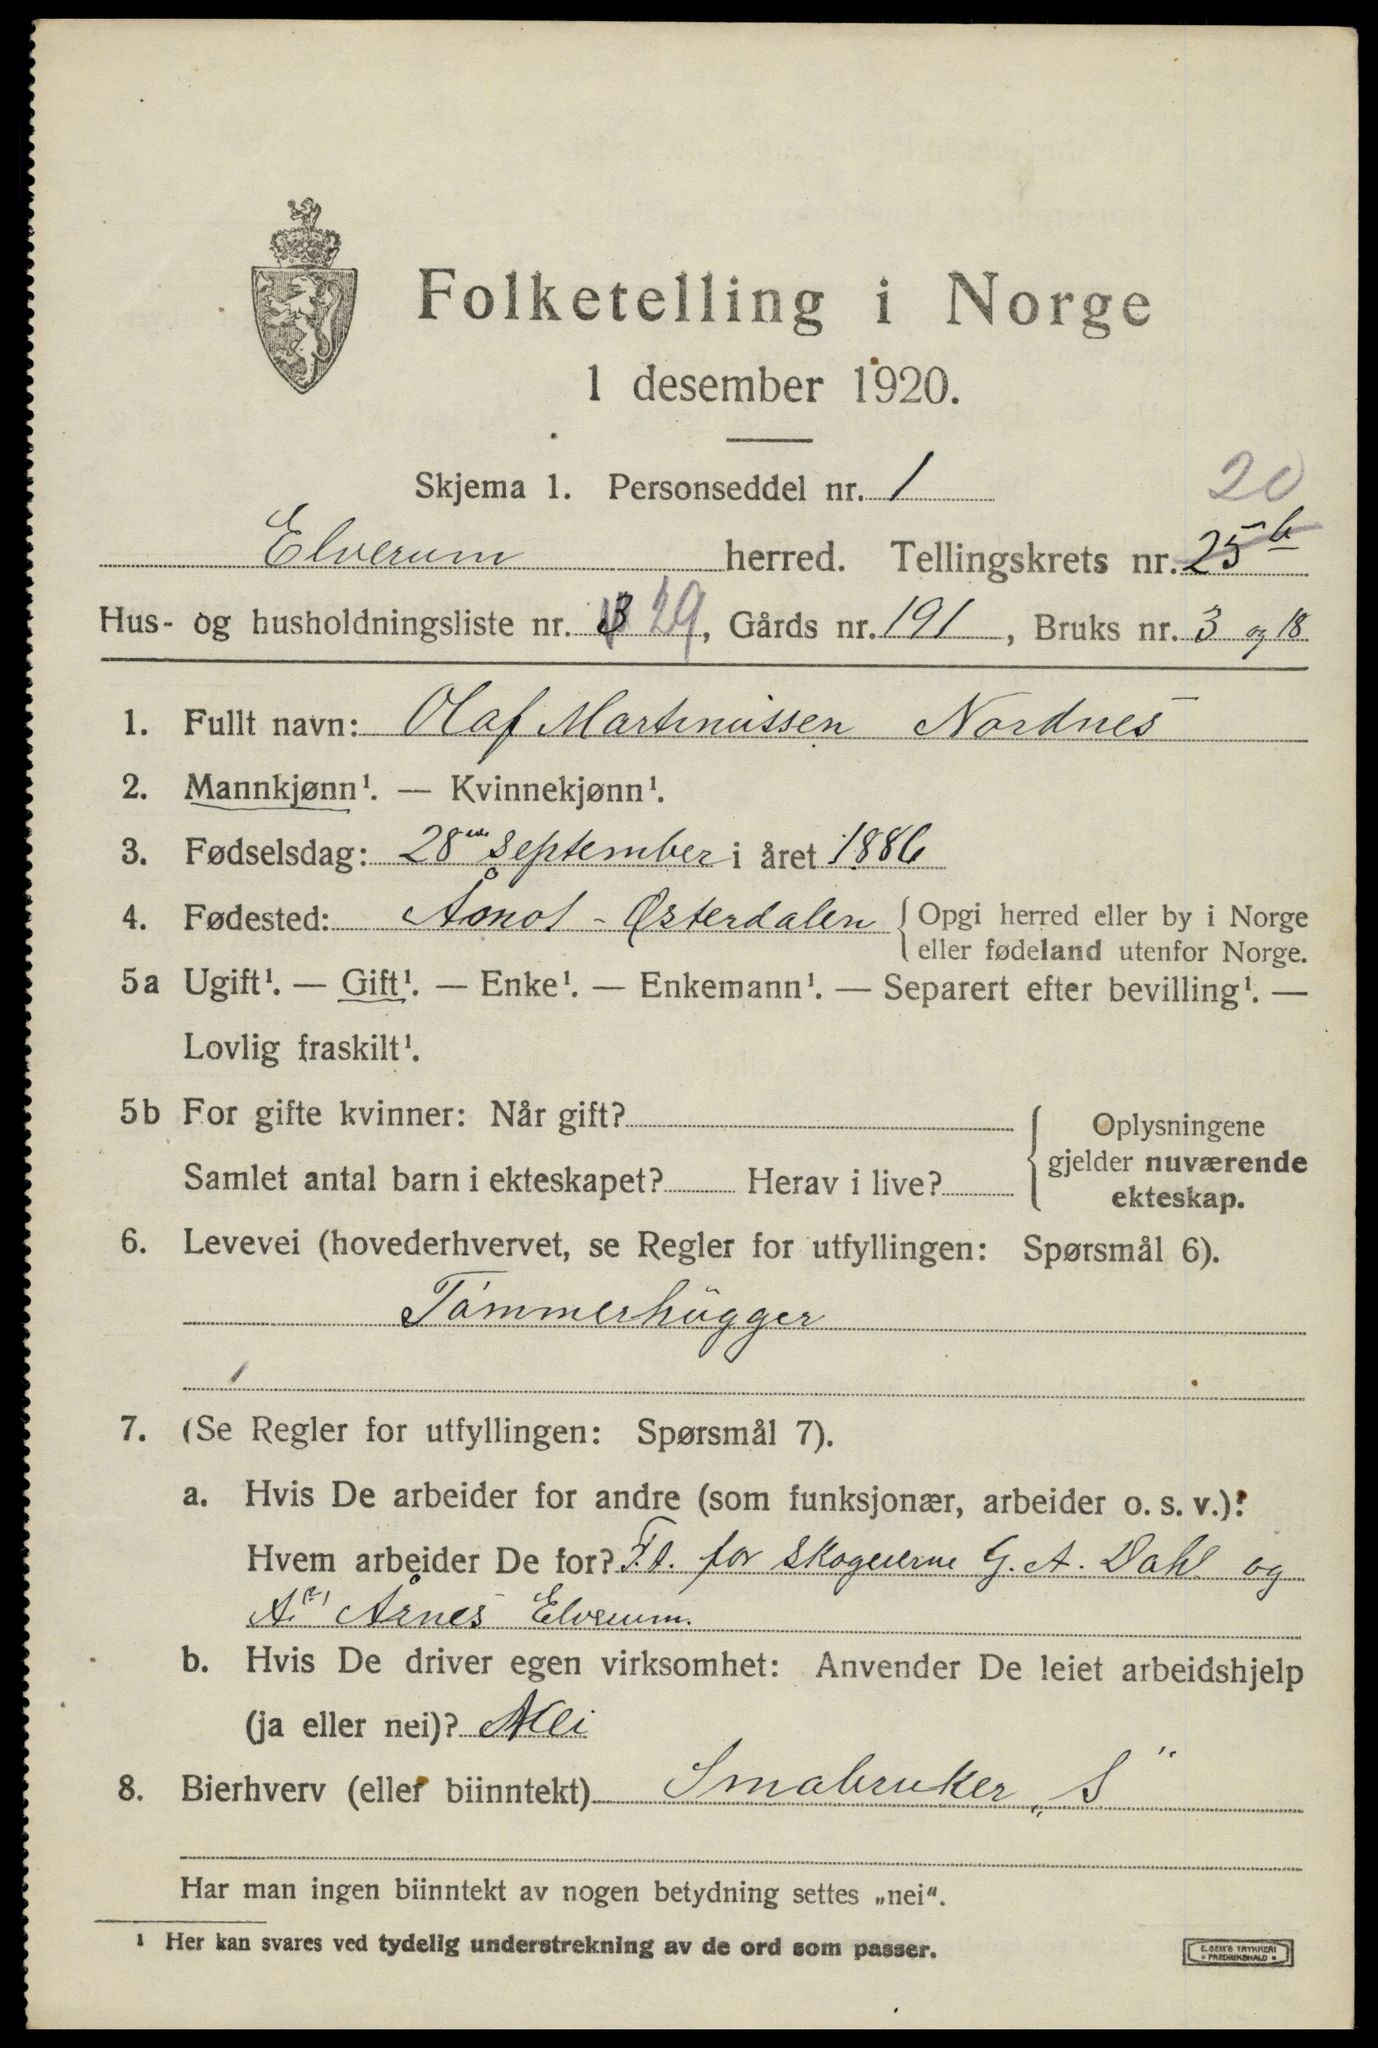 Folketelling i Norge
1 desember 1920.
Skjema 1. Personseddel nr. 1
20
Elverum herred. Tellingskrets nr. 25b
Hus- og husholdningsliste nr. 29, Gårds nr. 191, Bruks nr. 3 og 18
1. Fullt navn: Olaf Martinussen Nordnes
2. Mannkjønn¹. — Kvinnekjønn¹.
3. Fødselsdag: 28de september i året 1886
4. Fødested: Åmot - Østerdalen { Opgi herred eller by i Norge
eller fødeland utenfor Norge.
5a Ugift¹. — Gift¹. — Enke¹. — Enkemann¹. — Separert efter bevilling¹. —
Lovlig fraskilt¹.
5b For gifte kvinner: Når gift?
Samlet antal barn i ekteskapet? Herav i live?
{ Oplysningene
gjelder nuværende
ekteskap.
6. Levevei (hovederhvervet, se Regler for utfyllingen: Spørsmål 6).
Tømmerhugger
7. (Se Regler for utfyllingen: Spørsmål 7).
a. Hvis De arbeider for andre (som funksjonær, arbeider o. s. v.):
Hvem arbeider De for? F.t. for skogeierne G. A. Dahl og
A. Årnes Elverum.
b. Hvis De driver egen virksomhet: Anvender De leiet arbeidshjelp
(ja eller nei)? Nei
8. Bierhverv (eller biinntekt) Småbruker „S"
Har man ingen biinntekt av nogen betydning settes „nei".
¹ Her kan svares ved tydelig understrekning av de ord som passer.
E. SEM'S TRYKKERI
FREDRIKSHALD